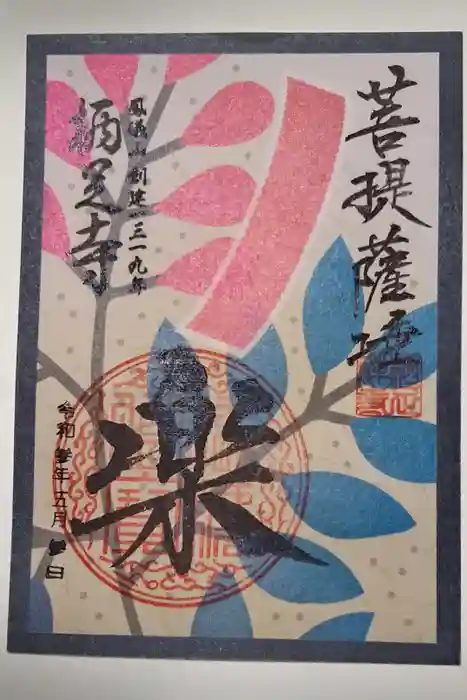 菩提薩埵
楽
鳳儀山創建一三一九年
栖足寺
令和参年五月